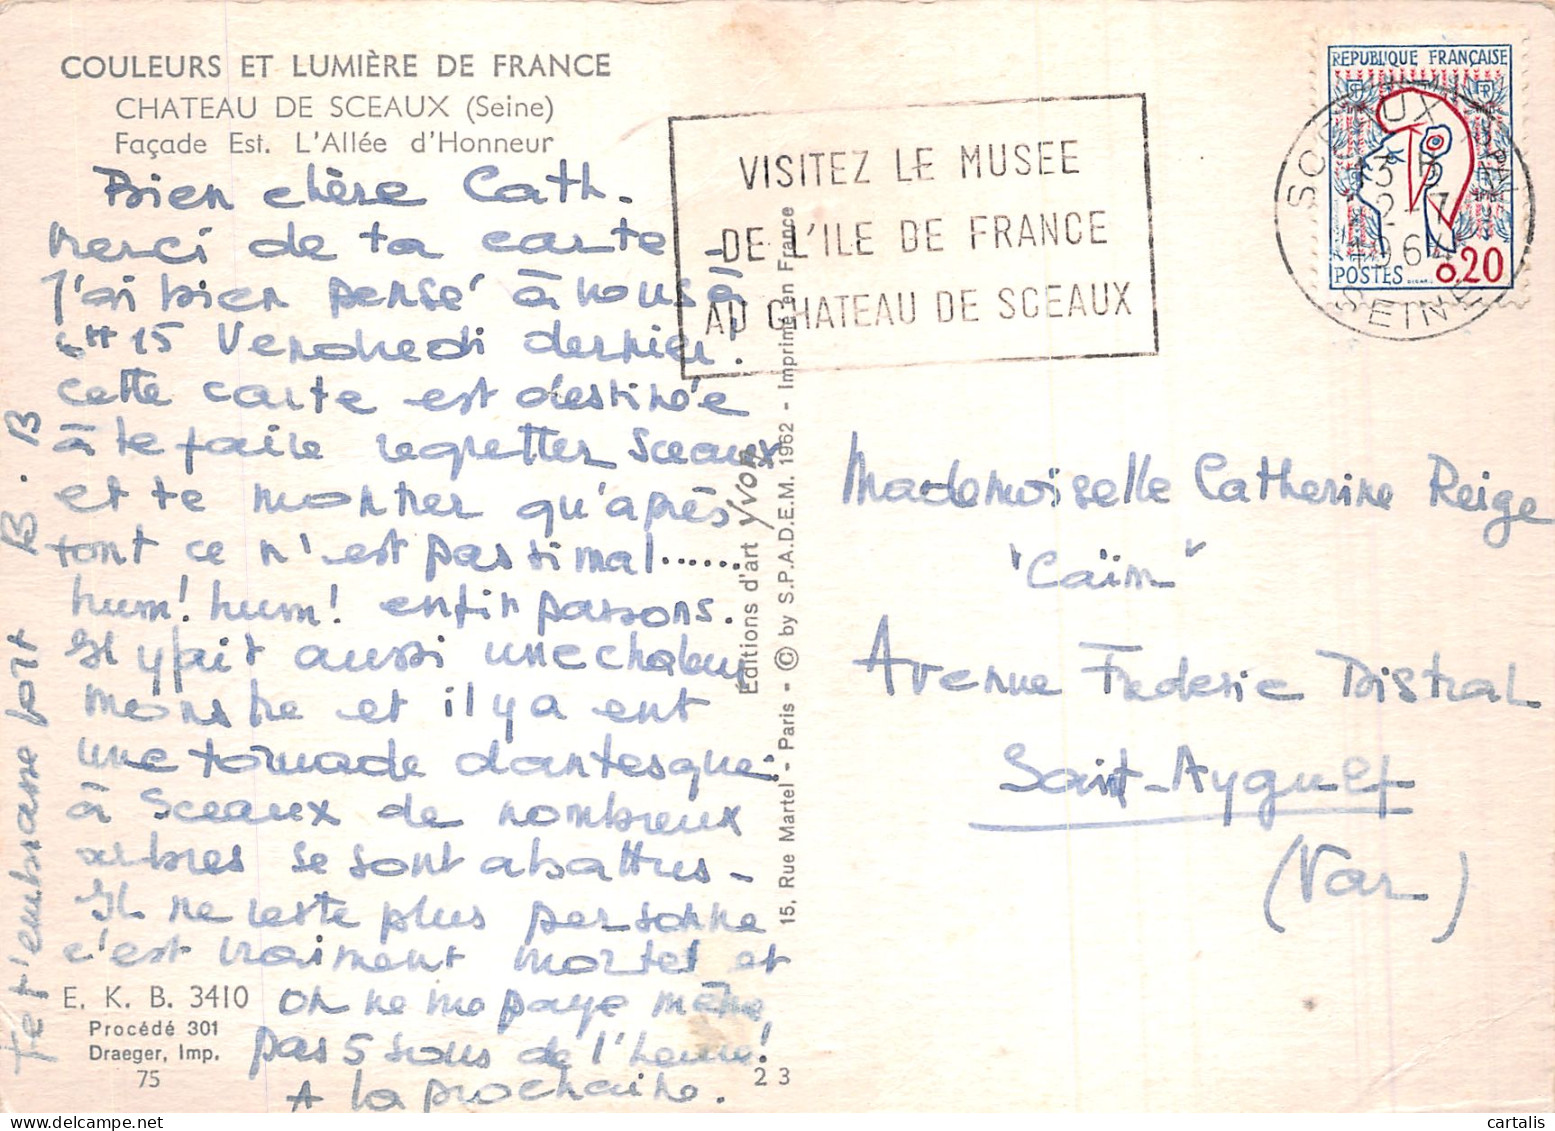 COULEURS ET LUMIÈRE DE FRANCE
CHATEAU DE SCEAUX (Seine)
Façade Est. L'Allée d'Honneur
Bien chère Cath.
Merci de ta carte -
J'ai bien pensé à vous à
6H 15 Vendredi dernier!
cette carte est destinée
à te faire regretter Sceaux
et te montrer qu'après
tout ce n'est pas si mal......
hum! hum! enfin passons.
Il y fait aussi une chaleur
monstre et il y a eut
une tornade dantesque:
à Sceaux de nombreux
arbres se sont abattus -
Il ne reste plus personne
c'est vraiment mortel et
on ne me paye même
pas 5 sous de l'heure!
A la prochaine.
Je t'embrasse fort B. B
E. K. B. 3410
Procédé 301
Draeger, Imp.
75
23
Éditions d'art Yvon
15, Rue Martel - Paris - © by S.P.A.D.E.M. 1962 - Imprimé en France
VISITEZ LE MUSEE
DE L'ILE DE FRANCE
AU CHATEAU DE SCEAUX
REPUBLIQUE FRANÇAISE
RF RF
POSTES 0,20
SCEAUX PAL
13 H
2-7
1964
SEINE
Mademoiselle Catherine Reige
"Caïm"
Avenue Frederic Mistral
Saint-Aygulf
(Var)
cartalis